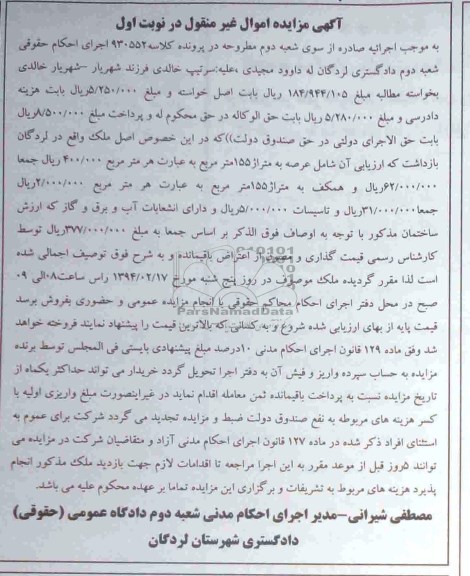 آگهی مزایده اموال غیر منقول در نوبت اول
به موجب اجرائیه صادره از سوی شعبه دوم مطروحه در پرونده کلاسه ۹۳۰۵۵۲ اجرای احکام حقوقی
شعبه دوم دادگستری لردگان له داوود مجیدی ،علیه:سرتیپ خالدی فرزند شهریار –شهریار خالدی
بخواسته مطالبه مبلغ ۱۸۴/۹۴۴/۱۰۵ ریال بابت اصل خواسته و مبلغ ۵/۲۵۰/۰۰۰ریال بابت هزینه
دادرسی و مبلغ ۵/۲۸۰/۰۰۰ ریال بابت حق الوکاله در حق محکوم له و پرداخت مبلغ ۸/۵۰۰/۰۰۰ریال
بابت حق الاجرای دولتی در حق صندوق دولت))که در این خصوص اصل ملک واقع در لردگان
بازداشت که ارزیابی آن شامل عرصه به متراژ۱۵۵متر مربع به عبارت هر متر مربع ۴۰۰/۰۰۰ ریال جمعا
۶۲/۰۰۰/۰۰۰ریال و همکف به متراژ۱۵۵متر مربع به عبارت هر متر مربع ۲/۰۰۰/۰۰۰ریال
جمعا۳۱/۰۰۰/۰۰۰ریال و تاسیسات ۵/۰۰۰/۰۰۰ریال و دارای انشعابات آب و برق و گاز که ارزش
ساختمان مذکور با توجه به اوصاف فوق الذکر بر اساس جمعا به مبلغ ۳۷۷/۰۰۰/۰۰۰ریال توسط
کارشناس رسمی قیمت گذاری و مصون از اعتراض باقیمانده و به شرح فوق توصیف اجمالی شده
است لذا مقرر گردیده ملک موصوف در روز پنج شنبه مورخ ۱۳۹۴/۰۲/۱۷ راس ساعت۰۸الی ۰۹
صبح در محل دفتر اجرای احکام محاکم حقوقی با انجام مزایده عمومی و حضوری بفروش برسد
قیمت پایه از بهای ارزیابی شده شروع و به کسانی که بالاترین قیمت را پیشنهاد نمایند فروخته خواهد
شد وفق ماده ۱۲۹ قانون اجرای احکام مدنی ۱۰درصد مبلغ پیشنهادی بایستی فی المجلس توسط برنده
مزایده به حساب سپرده واریز و فیش آن به دفتر اجرا تحویل گردد خریدار می تواند حداکثر یکماه از
تاریخ مزایده نسبت به پرداخت باقیمانده ثمن معامله اقدام نماید در غیراینصورت مبلغ واریزی اولیه با
کسر هزینه های مربوطه به نفع صندوق دولت ضبط و مزایده تجدید می گردد شرکت برای عموم به
استثنای افراد ذکر شده در ماده ۱۲۷ قانون اجرای احکام مدنی آزاد و متقاضیان شرکت در مزایده می
توانند ۵روز قبل از موعد مقرر به این اجرا مراجعه تا اقدامات لازم جهت بازدید ملک مذکور انجام
پذیرد هزینه های مربوط به تشریفات و برگزاری این مزایده تماما بر عهده محکوم علیه می باشد.
مصطفی شیرانی–مدیر اجرای احکام مدنی شعبه دوم دادگاه عمومی (حقوقی)
دادگستری شهرستان لردگان
ParsNamadData